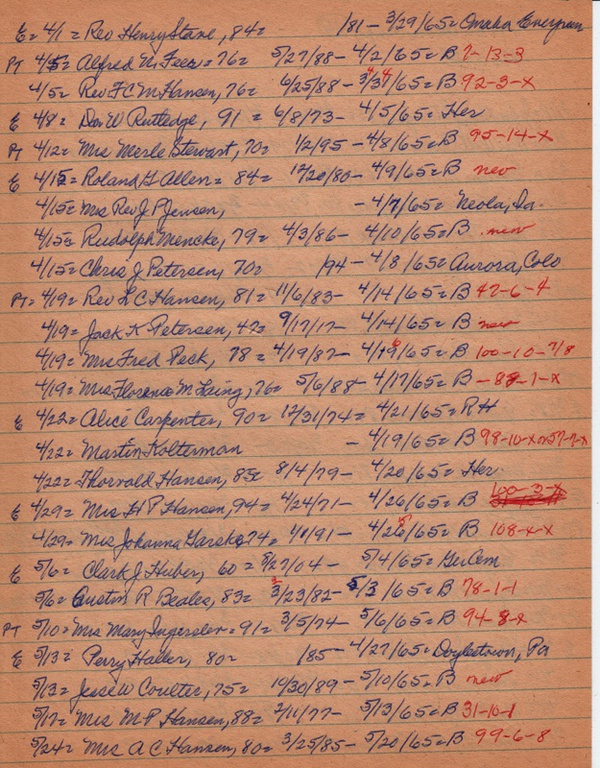 E = 4/1 = Rev Henry Stave, 84 = /81 - 3/29/65 = Omaha Evergreen
PT 4/5 = Alfred N. Feer = 76 = 5/27/88 - 4/2/65 = B 7-13-3
4/5 = Rev F C M Hansen, 76 = 6/25/88 - 3/31/65 = B 92-3-x
E 4/8 = Don W Rutledge, 91 = 6/8/73 - 4/5/65 = Her
PT 4/12 = Mrs Merle Stewart, 70 = 1/2/95 - 4/8/65 = B 95-14-x
E 4/15 = Roland G Allen = 84 = 12/20/80 - 4/9/65 = B new
4/15 = Mrs Rev J. P. Jensen, - 4/7/65 = Neola, Ia.
4/15 = Rudolph Mencke, 79 = 4/3/86 - 4/10/65 = B new
4/15 = Chris J Petersen, 70 = /94 - 4/8/65 = Aurora, Colo
PT = 4/19 = Rev L C Hansen, 81 = 11/6/83 - 4/14/65 = B 47-6-4
4/19 = Jack K Petersen, 47 = 9/17/17 - 4/14/65 = B new
4/19 = Mrs Fred Peck, 78 = 4/19/87 - 4/19/65 = B 100-10-7/8
4/19 = Mrs Florence M Laing, 76 = 5/6/88 - 4/17/65 = B -89-1-x
E 4/22 = Alice Carpenter, 90 = 12/31/74 = 4/21/65 = RH
4/22 = Martin Kolterman - 4/19/65 = B 98-10-x or 57-7-x
4/22 = Thorvald Hansen, 85 = 8/4/79 - 4/20/65 = Her
E 4/29 = Mrs H P Hansen, 94 = 4/24/71 - 4/26/65 = B 100-3-x
4/29 = Mrs Johanna 74 = /91 - 4/26/65 = B 108-x-x
E 5/6 = Clark J. Huber, 60 = 5/27/04 - 5/4/65 = Ger Cem
5/6 = Austin R Beales, 83 = 3/23/82 - 5/3/65 = B 78-1-1
PT 5/10 = Mrs Mary Ingersler = 91 = 3/5/74 - 5/6/65 = B 94-8-x
E 5/13 = Perry Haller, 80 = /85 - 4/27/65 = Doylestown, Pa
5/13 = Jesse W Coulter, 75 = 10/30/89 - 5/10/65 = B new
5/17 = Mrs M P Hansen, 88 = 2/11/77 - 5/13/65 = B 31-10-1
5/24 = Mrs A C Hansen, 80 = 3/25/85 - 5/20/65 = B 99-6-8